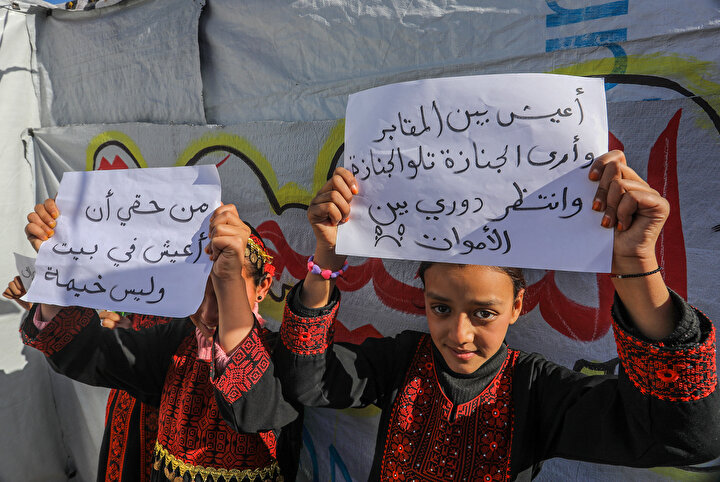 أعيش بين المقابر
وأرى الجنازة تلو الجنازة
وانتظر دوري بين
الأموات
من حقي أن
أعيش في بيت
وليس خيمة